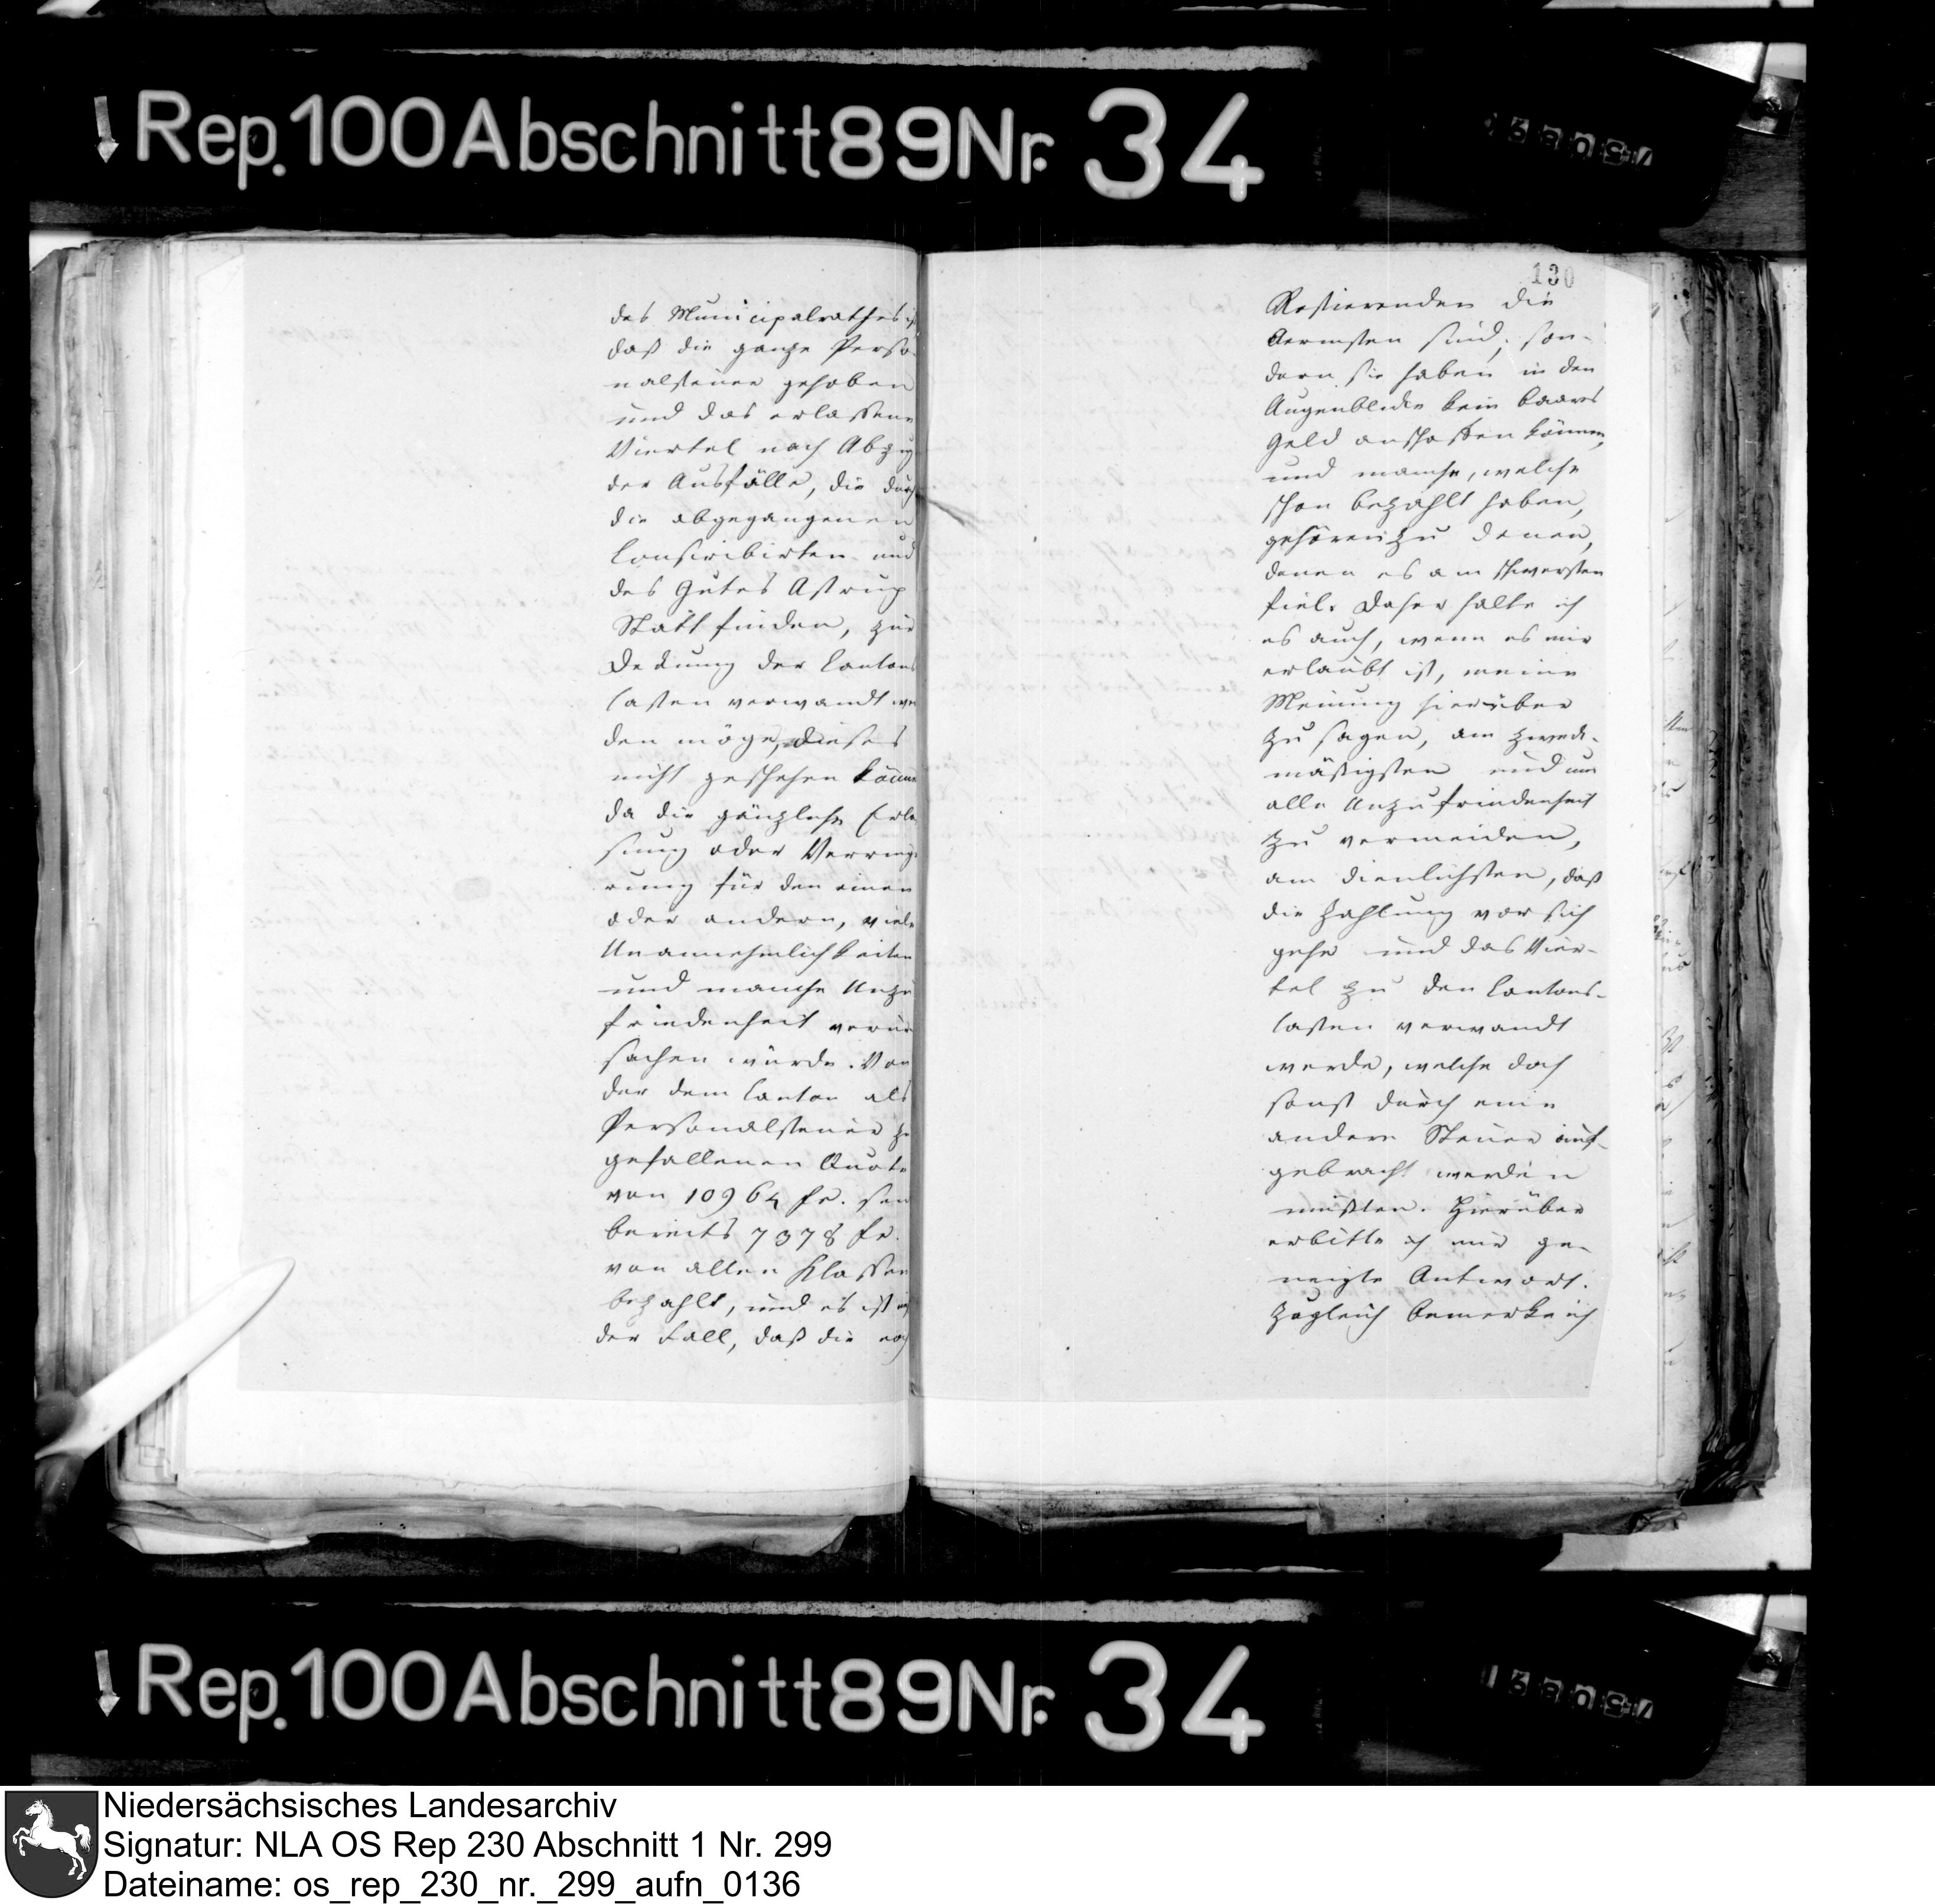 Rep. 100 Abschnitt 89 Nr. 34
des Municipalrathes
daß die ganze Perso-
nalsteuer gehoben
und das erlassene
Viertel nach Abzug
der Ausfälle, die durch
die abgegangenen
Conscribirten und
des Gutes Astrup
Statt finden, zur
Deckung der Cantons
lasten verwandt wer
den möge, dieses
nicht geschehen könne
da die gänzliche Erla
ssung oder Verringe
rung für den einen
oder andern, viele
Unannehmlichkeiten
und manche Unzu
friedenheit verur
sachen würde. Von
der dem Canton als
Personalsteuer zu
gefallenen Quote
von 10964 fr. sind
bereits 7378 fr.
von allen Klassen
bezahlt, und es ist
der Fall, daß die noch
130
Restierenden die
Aermsten sind, son-
dern sie haben in den
Augenblicke kein baares
Geld anschaffen können,
und manche, welche
schon bezahlt haben,
gehören zu denen,
denen es am schwersten
fiel. Daher halte ich
es auch, wenn es mir
erlaubt ist, meine
Meinung hierüber
zu sagen, am zweck-
mäßigsten und um
alle Unzufriedenheit
zu vermeiden,
am dienlichsten, daß
die Zahlung vor sich
gehe und das Vier-
tel zu den Cantons-
lasten verwandt
werde, welche doch
sonst durch eine
andere Steuer auf-
gebracht werden
müßten. Hierüber
erbitte ich mir ge-
neigte Antwort.
Zugleich bemerke ich
Rep. 100 Abschnitt 89 Nr. 34
Niedersächsisches Landesarchiv
Signatur: NLA OS Rep 230 Abschnitt 1 Nr. 299
Dateiname: os_rep_230_nr._299_aufn_0136